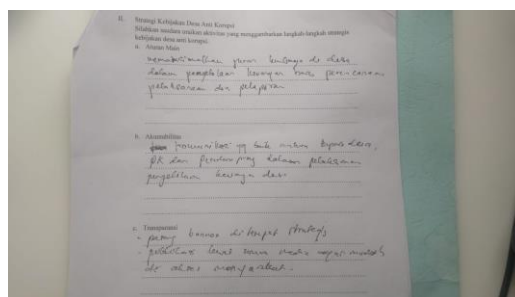 II. Strategi Kebijakan Desa Anti Korupsi
Silahkan saudara uraikan aktivitas yang menggambarkan langkah-langkah strategis
kebijakan desa anti korupsi.
a. Aturan Main
memaksimalkan peran lembaga di desa
dalam pengelolaan keuangan desa perencanaan
pelaksanaan dan pelaporan
b. Akuntabilitas
komunikasi yg baik antara
PK dan Pendamping dalam pelaksanaan
pengelolaan keuangan desa
c. Transparansi
- pasang banner di tempat strategis
- publikasi lewat media mudah
di akses masyarakat.